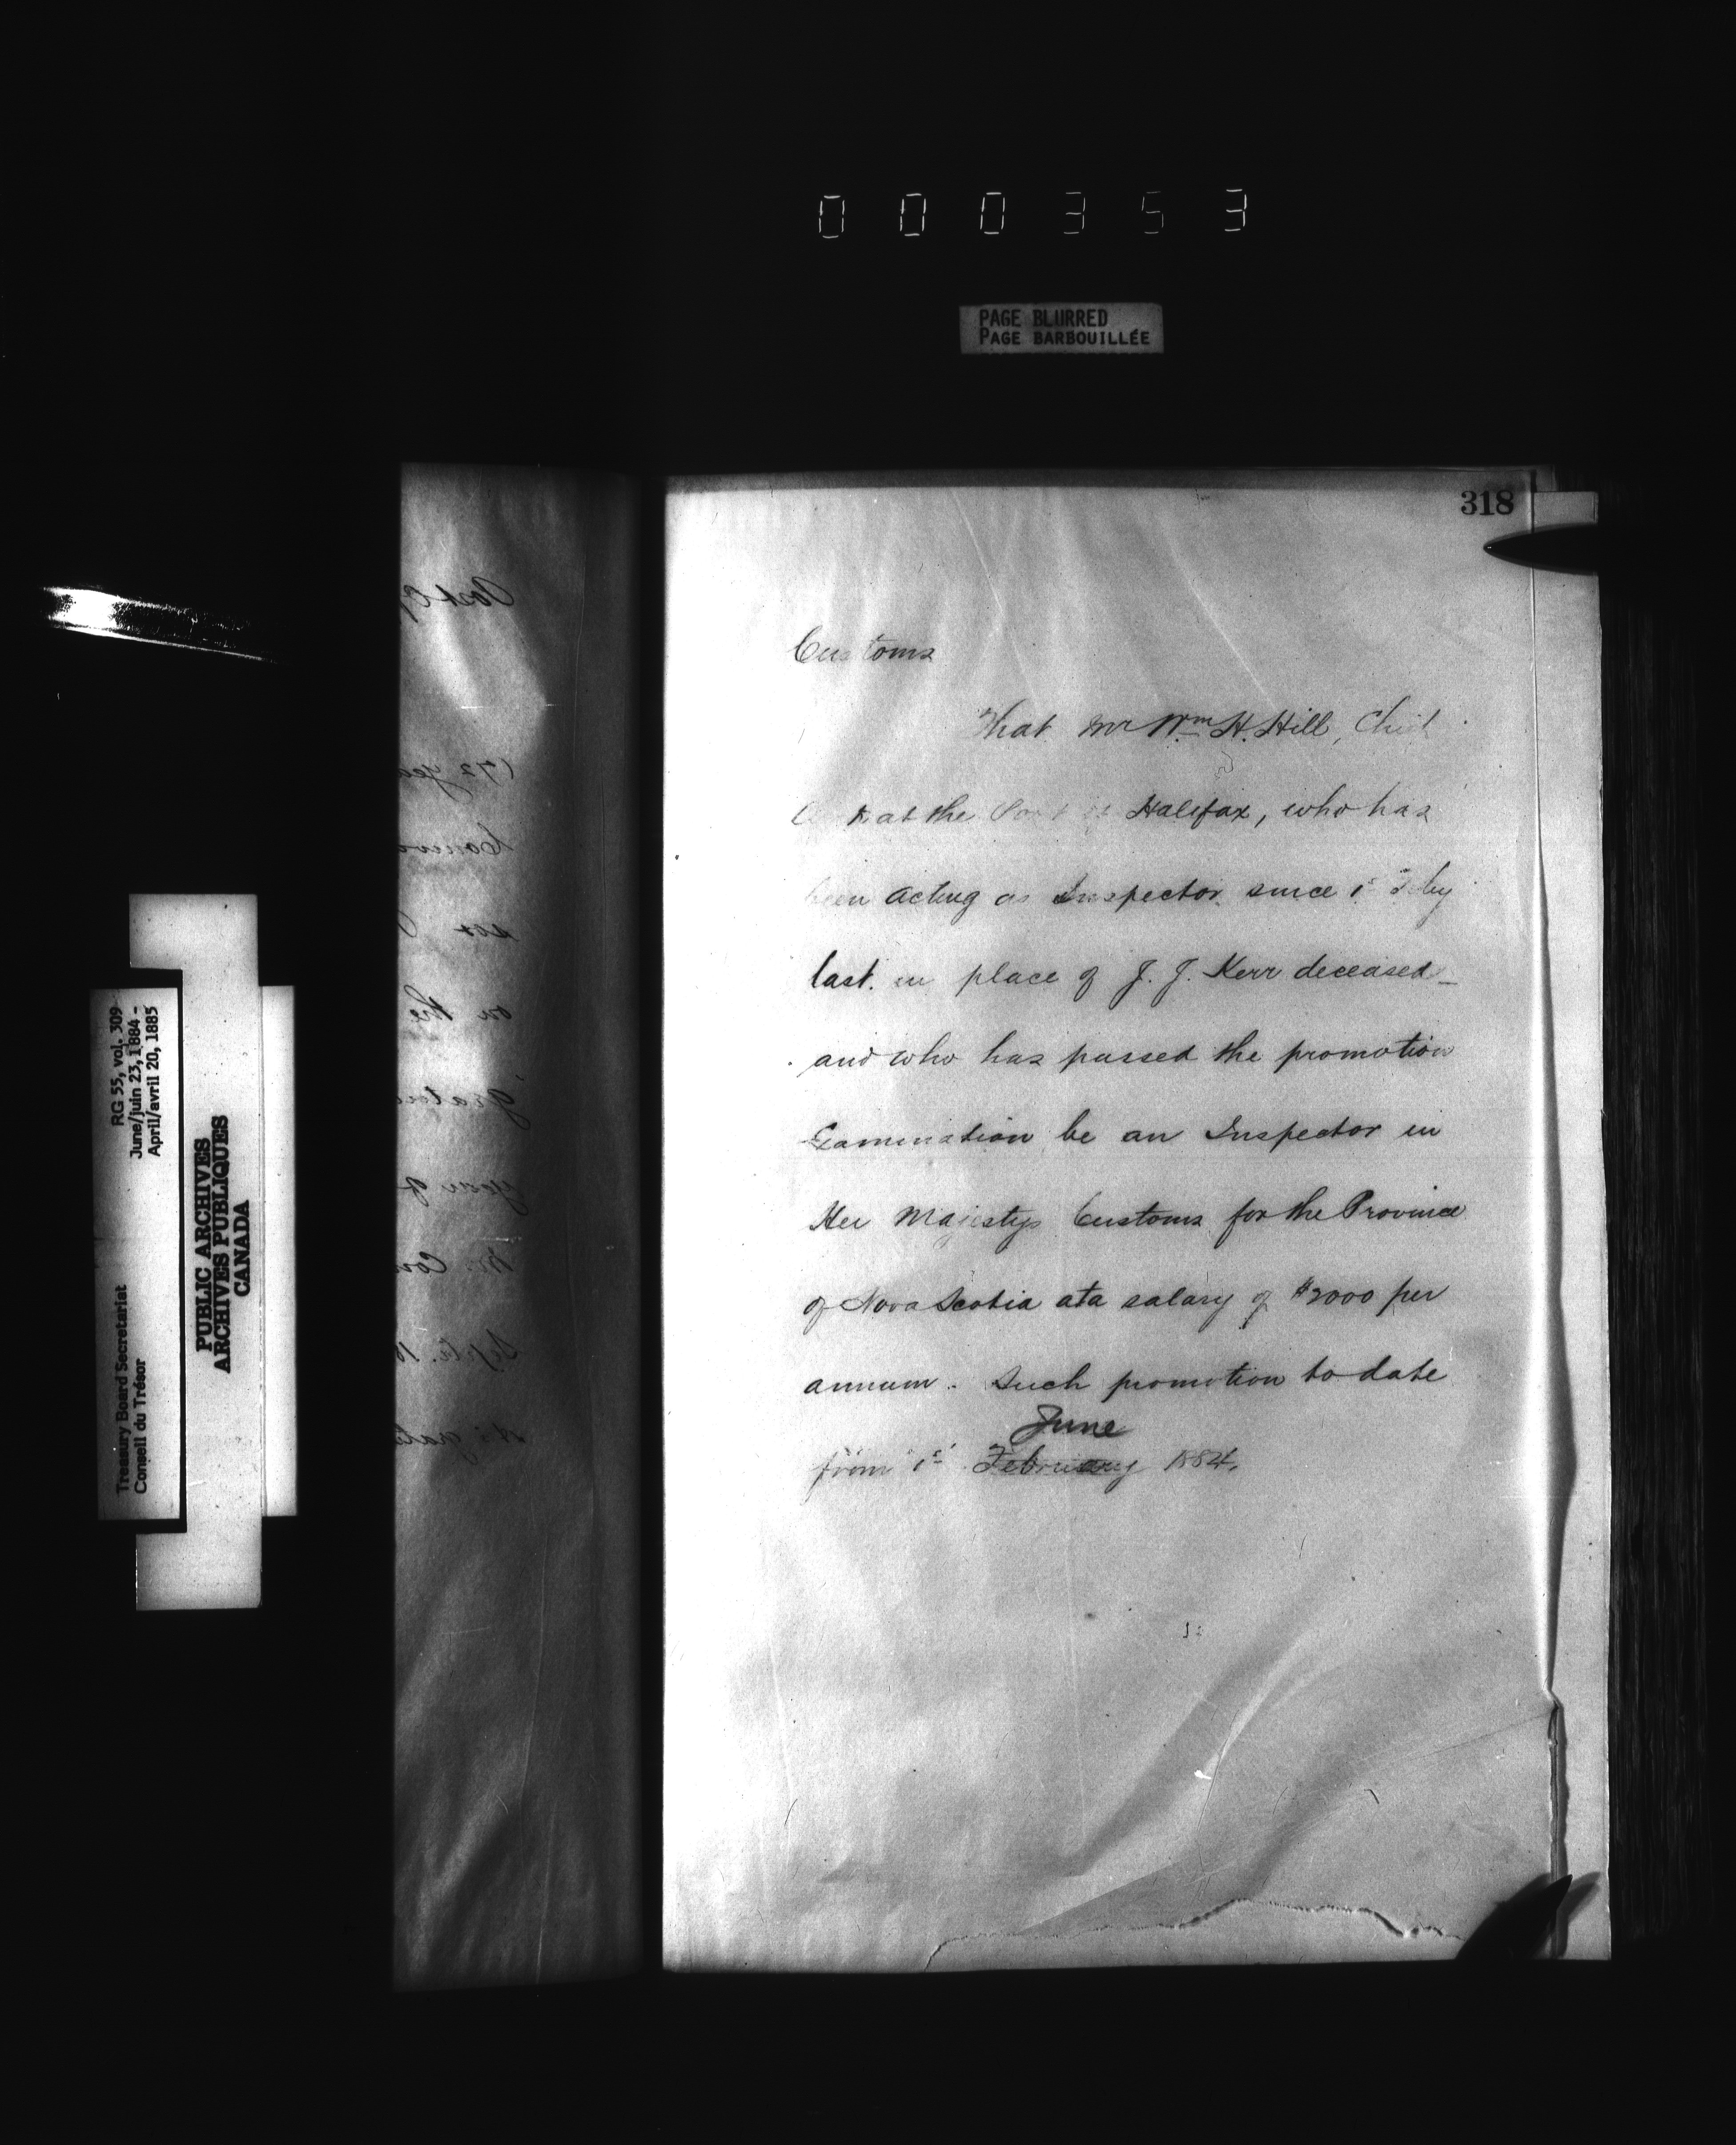 000353
PAGE BLURRED
PAGE BARBOUILLÉE
318
Customs
That Mr Wm H. Hill, Chief
Clerk at the Port of Halifax, who has
been acting as Inspector since 1st Feby
last. in place of J. J. Kerr deceased_
and who has passed the promotion
Examination be an Inspector in
Her Majestys Customs for the Province
of Nova Scotia at a salary of $2000 per
annum. Such promotion to date
June
from 1st February 1884.
RG 55, vol. 309
June/juin 23, 1884 -
April/avril 20, 1885
Treasury Board Secretariat
Conseil du Trésor
PUBLIC ARCHIVES
ARCHIVES PUBLIQUES
CANADA